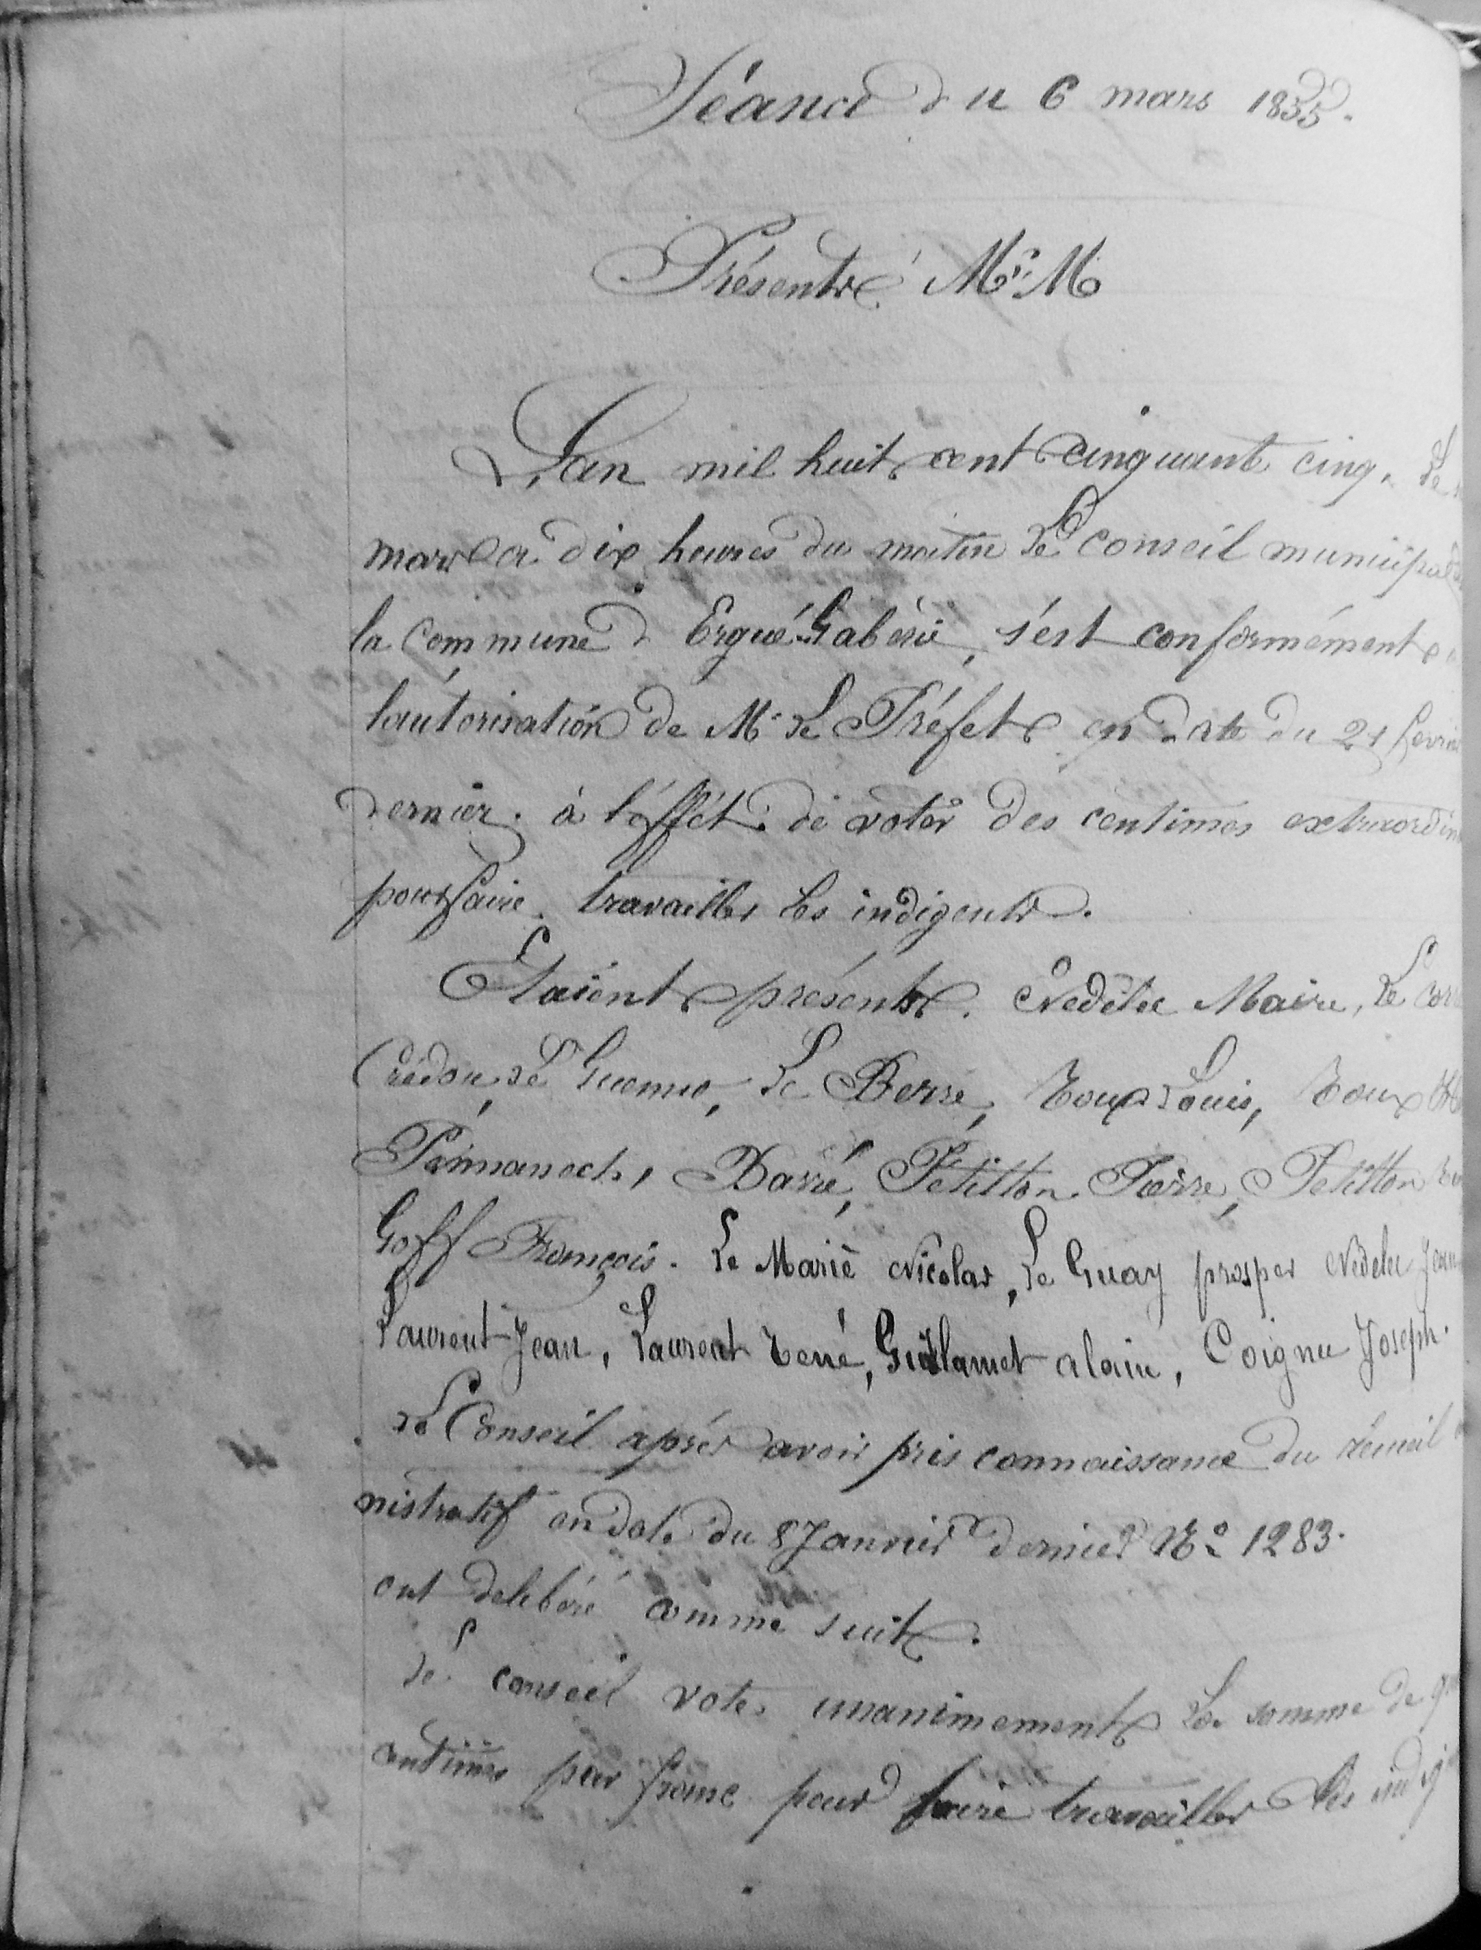 Séance du 6 mars 1855.
Présents Mrs. M
L'an mil huit cent cinquante cinq. Le
mars à dix heures du matin Le conseil municipal
la Commune d Ergué-Gabéric, s'est conformément
l'autorisation de Mr. Le Préfet en date du 21 fevrier
dernier. à l'éffét de voter des centimes extraordin
pour faire travailler les indigents.
Étaient présents. Nedelec Maire, Le
Crédou, Le Guenno, Le Berre, Roux Louis, Roux
Pennanech, Barré, Petitton Pierre, Petitton
Goff François. Le Marié Nicolas, Le Guay prosper Nedelec Jean
Laurent Jean, Laurent René, Guillamet alain, Coignu Joseph.
Le Conseil aprés avoir pris connaissance du récueil
nistratif en date du 8 Janvier dernier No 1283.
ont deliberé comme suit.
Le conseil vote unanimement la somme de
centimes par franc pour faire travailler les indig